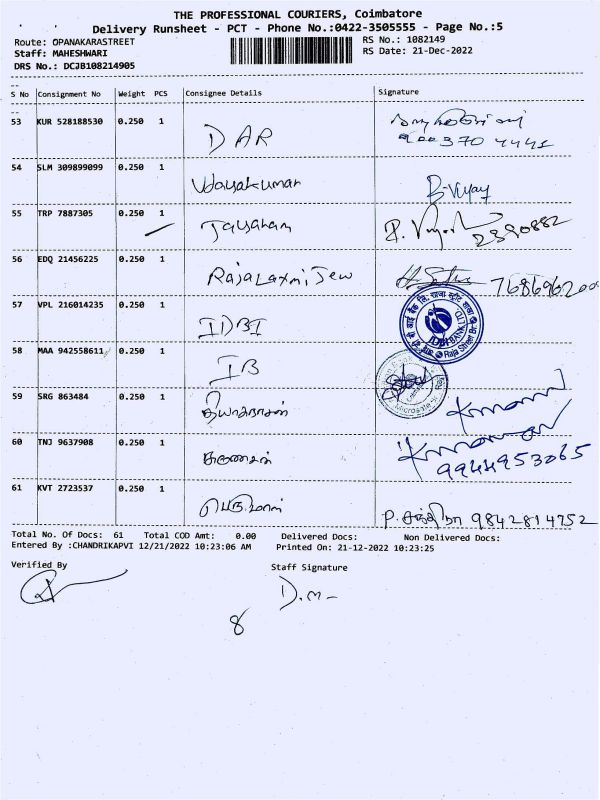 THE PROFESSIONAL COURIERS, Coimbatore
Delivery Runsheet - PCT - Phone No.:0422-3505555 - Page No.:5
Route: OPANAKARASTREET RS No.: 1082149
Staff: MAHESHWARI RS Date: 21-Dec-2022
DRS No.: DCJB108214905
S No Consignment No Weight PCS Consignee Details Signature
53 KUR 528188530 0.250 1 DAR
54 SLM 309899099 0.250 1 Udayakumar B-Vijay
55 TRP 7887305 0.250 1 2390882
56 EDQ 21456225 0.250 1 RajaLaxmi Jew
57 VPL 216014235 0.250 1 IDBI IDBI BANK LTD Raja Street Br.
58 MAA 942558611 0.250 1 IB
59 SRG 863484 0.250 1 தியாகராஜன்
60 TNJ 9637908 0.250 1 9944953065
61 KVT 2723537 0.250 1 பெருமாள் 9842814752
Total No. Of Docs: 61 Total COD Amt: 0.00 Delivered Docs: Non Delivered Docs:
Entered By :CHANDRIKAPVI 12/21/2022 10:23:06 AM Printed On: 21-12-2022 10:23:25
Verified By Staff Signature
D.m-
8